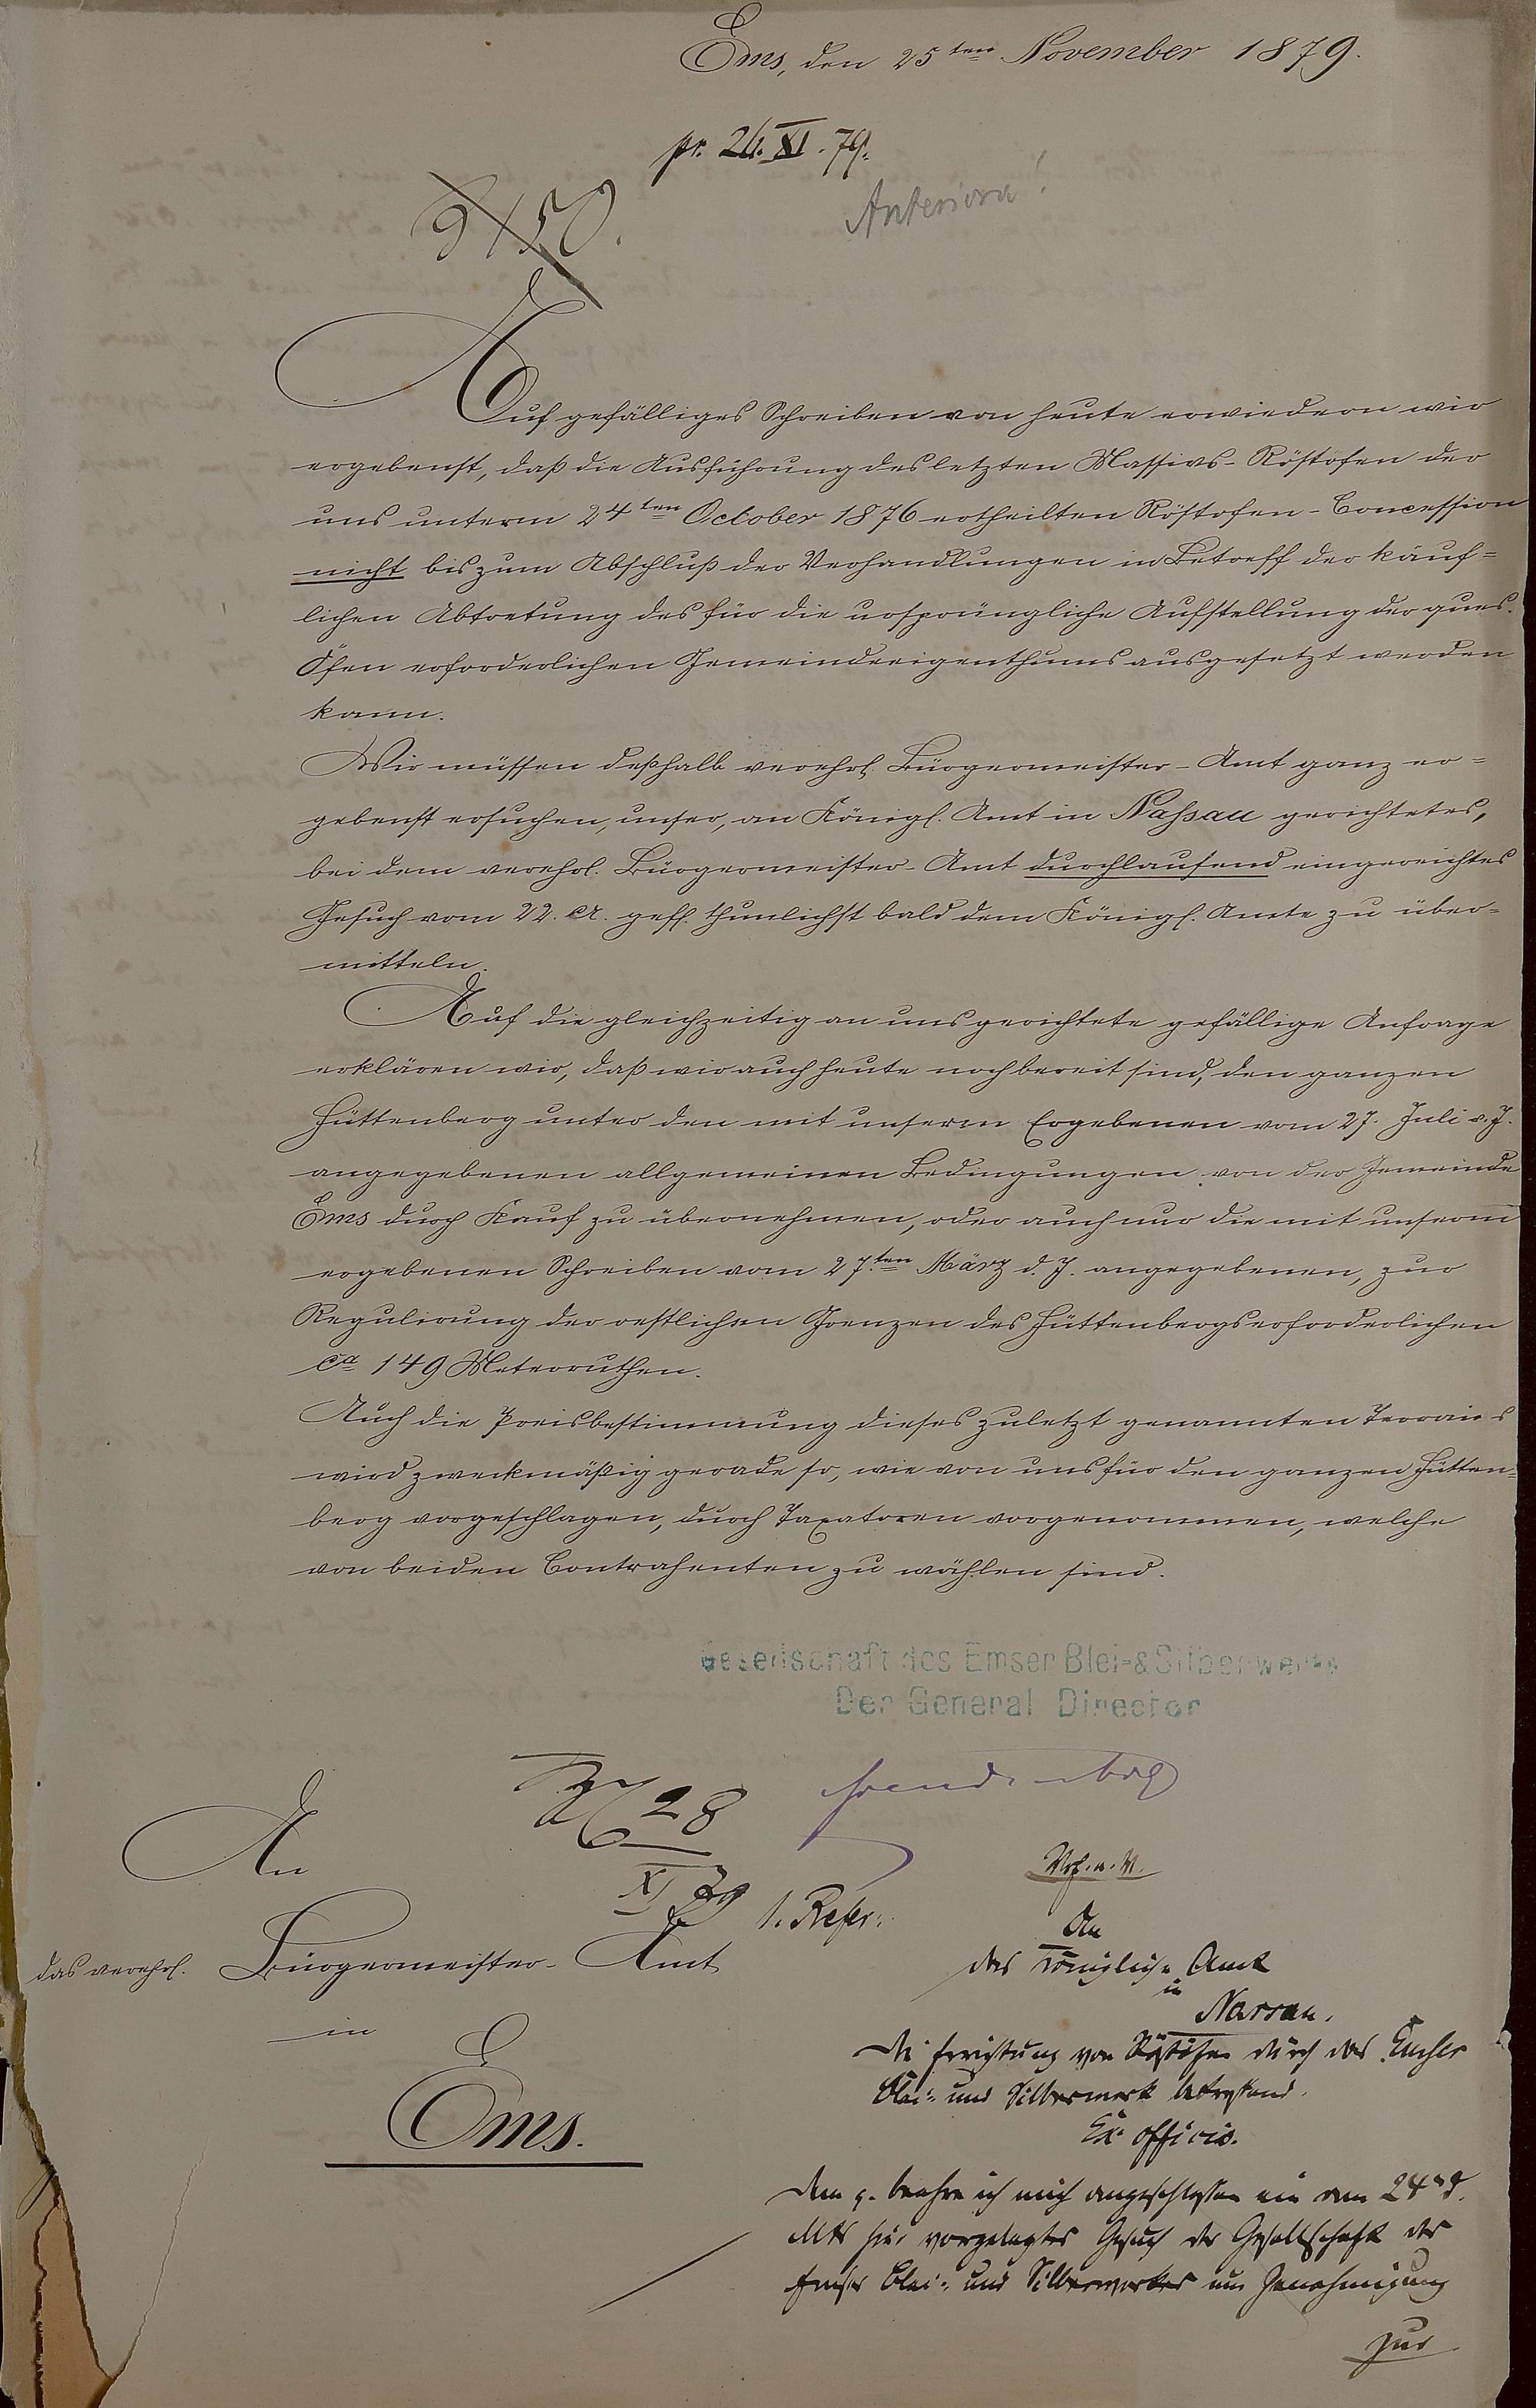 Ems, den 25ten November 1879.
pr. 26. XI. 79.
Anteriora!
9150.
Auf gefälliges Schreiben von heute erwiedern wir
ergebenst, daß die Ausführung des letzten Massivs-Röstofen der
uns unterm 24ten October 1876 ertheilten Röstofen-Concession
nicht bis zum Abschluß der Verhandlungen in Betreff der käuf=
lichen Abtretung des für die ursprüngliche Aufstellung der ques.
Öfen erforderlichen Gemeindeeigenthums ausgesetzt werden
kann.
Wir müssen deßhalb verehrl. Bürgermeister-Amt ganz er=
gebenst ersuchen, unser, an Königl. Amt in Nassau gerichtetes,
bei dem verehrl. Bürgermeister-Amt durchlaufend eingereichtes
Gesuch vom 22. cr. gefl. thunlichst bald dem Königl. Amte zu über=
mitteln.
Auf die gleichzeitig an uns gerichtete gefällige Anfrage
erklären wir, daß wir auch heute noch bereit sind, den ganzen
Hüttenberg unter den mit unserem Ergebenen vom 27. Juli v. J.
angegebenen allgemeinen Bedingungen von der Gemeinde
Ems durch Kauf zu übernehmen, oder auch nur die mit unserm
ergebenen Schreiben vom 27.ten März d. J. angegebenen, zur
Regulirung der oestlichen Grenzen des Hüttenbergs erforderlichen
ca 149 Meterruthen.
Auch die Preisbestimmung dieses zuletzt genannten Terrains
wird zweckmäßig gerade so, wie von uns für den ganzen Hütten=
berg vorgeschlagen, durch Taxatoren vorgenommen, welche
von beiden Contrahenten zu wählen sind.
Gesellschaft des Emser Blei-& Silberwerks
Der General Director
An
das verehrl. Bürgermeister-Amt
in
Ems.
28
XI 79
1. Refer:
An
das Königliche Amt
in
Nassau.
Die Errichtung von Röstöfen durch das Emser
Blei- und Silberwerk betreffend.
Ex officio.
Dem p. beehre ich mich angeschlossen ein am 24n d.
Mts hier vorgelegtes Gesuch der Gesellschaft des
Emser Blei- und Silberwerkes um Genehmigung
zur